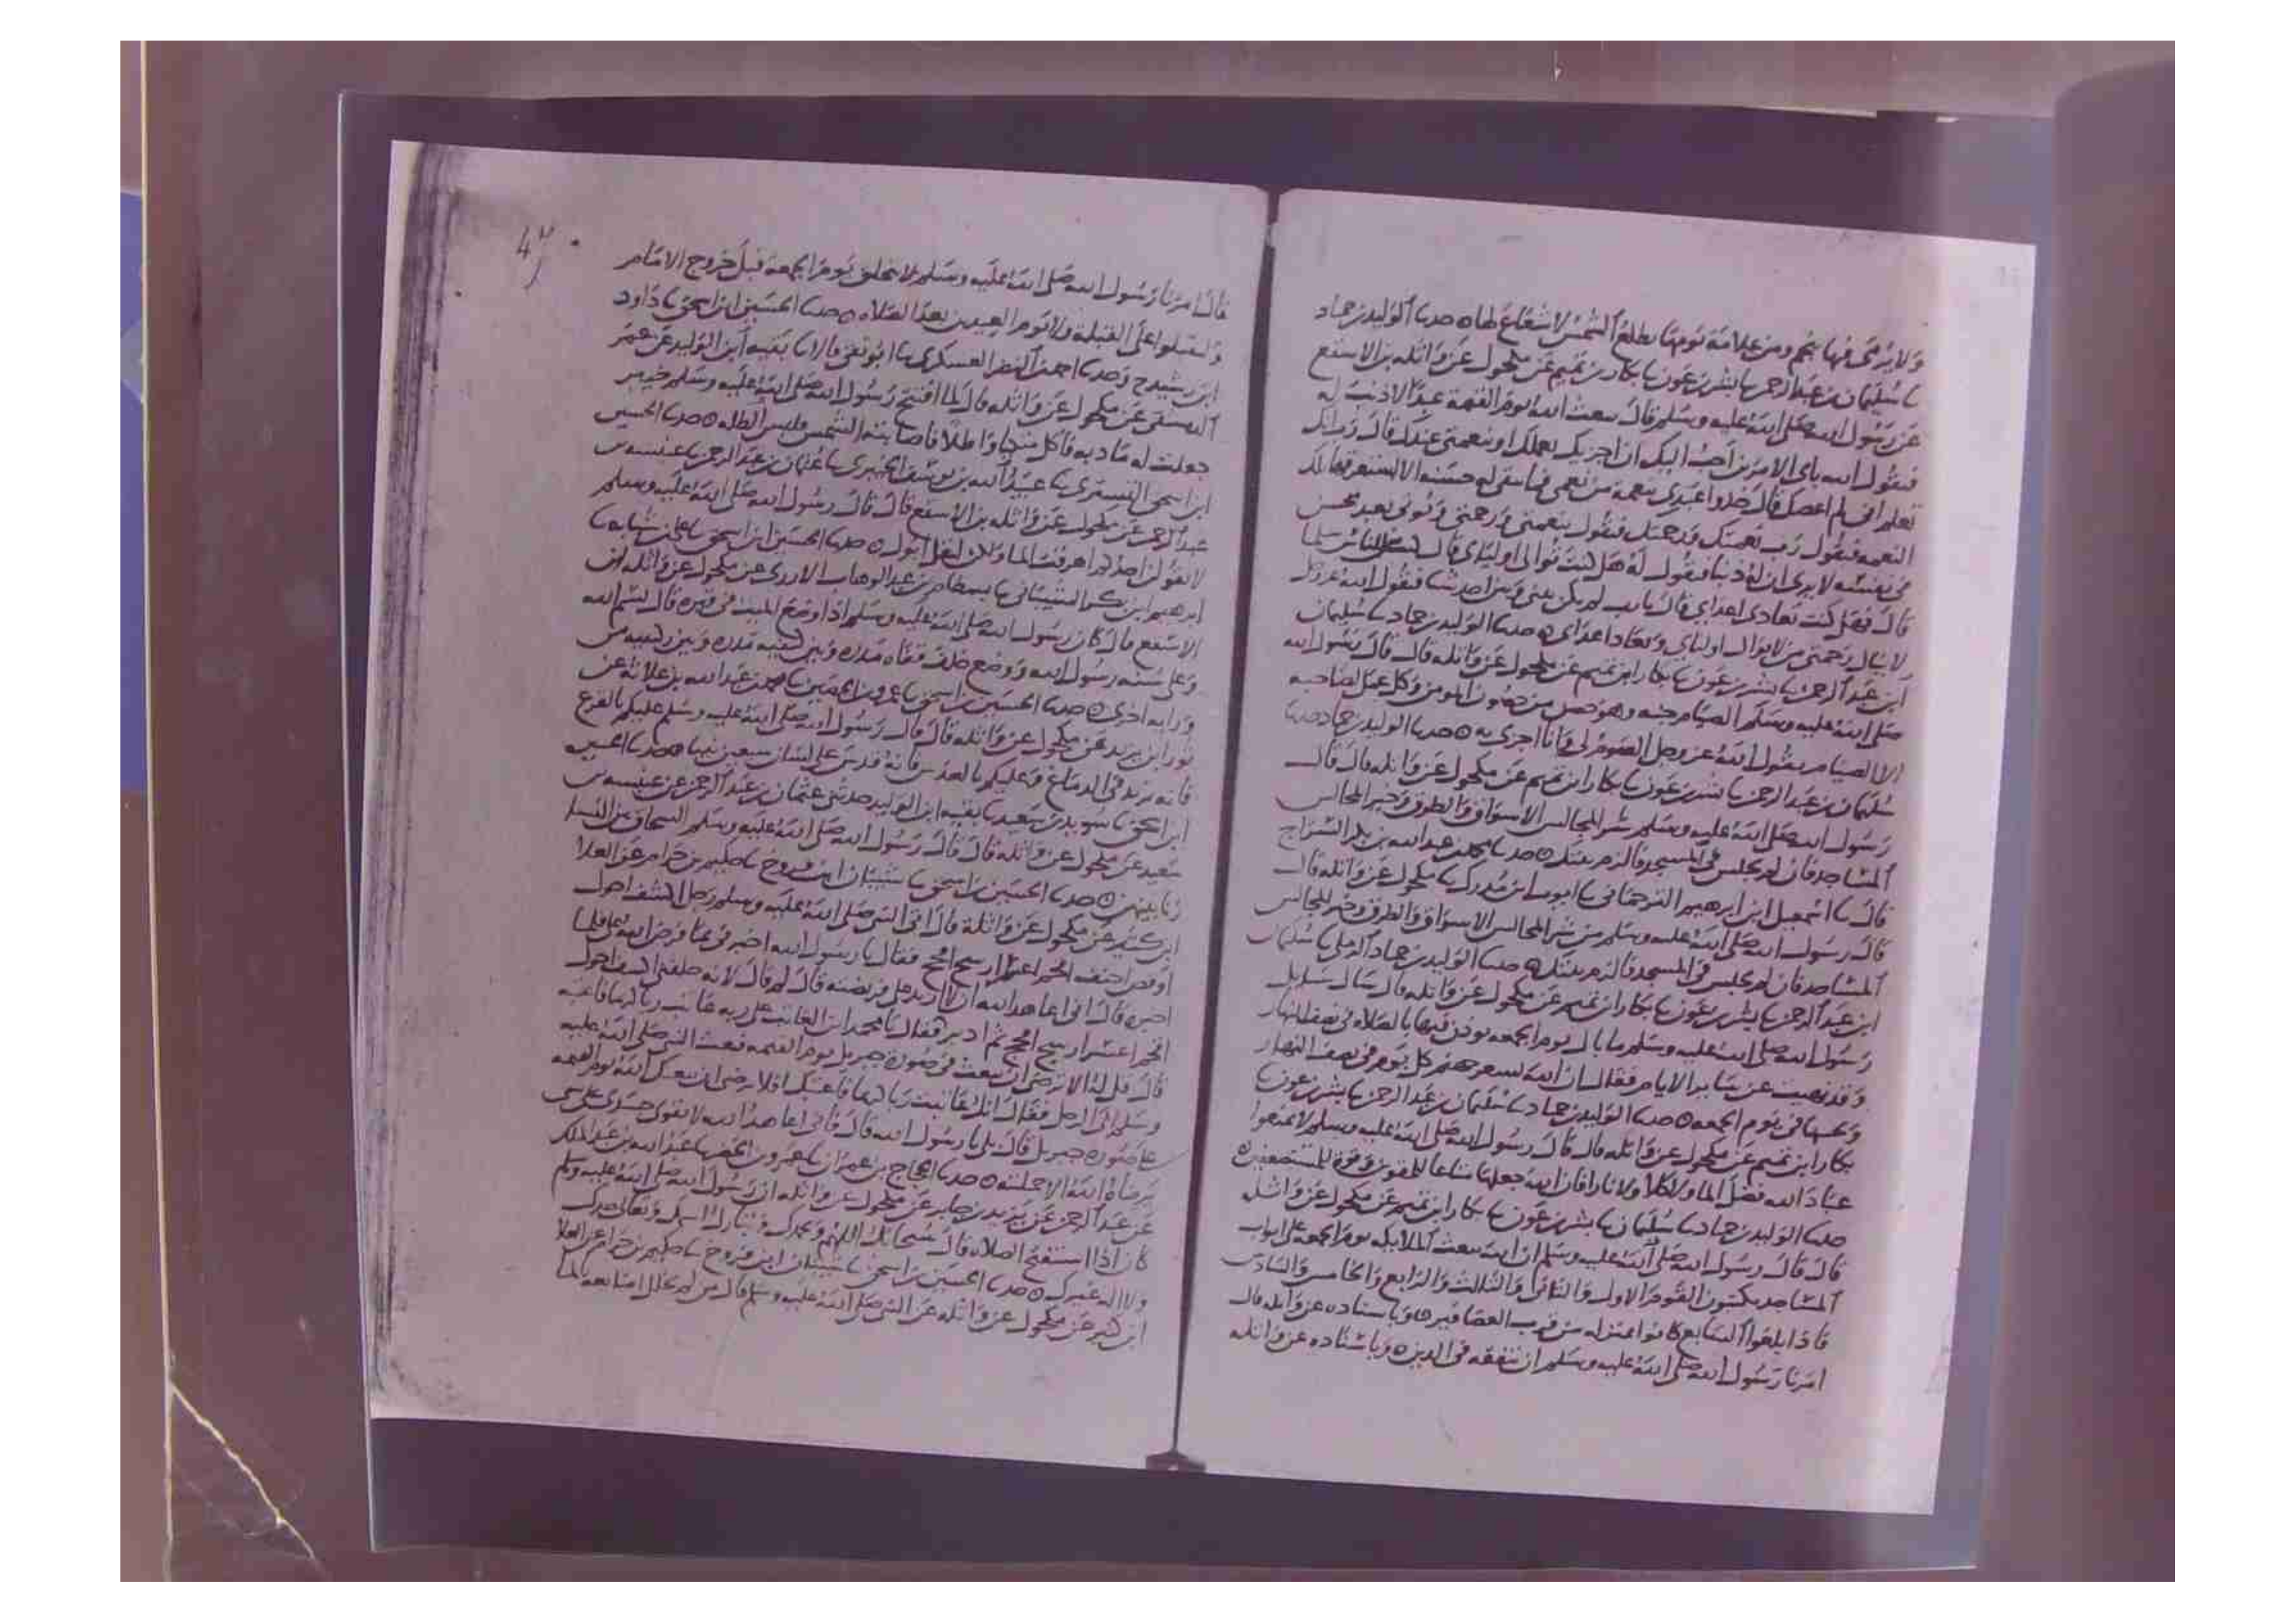 ولا يرمى فيها بنجم ومن علامة يومها يطلع الشمس لا شعاع لها ٥ حدثنا الوليد بن حماد
نا سليمان بن عبد الرحمن نا بشر بن عون نا بكار بن تميم عن مكحول عن واثله بن الاسقع
عن رسول الله صلى الله عليه وسلم قال يبعث الله يوم القيمة عبدا لا ذنب له
فيقول الله باي الامرين احب اليك ان اجزيك بعملك او بنعمتي عندك قال رب انك
تعلم اني لم اعصك قال خذوا عبدي بنعمة من نعمي فما يبقى له حسنه الا استغرقتها تلك
النعمه فيقول رب بنعمتك ورحمتك فيقول بنعمتي ورحمتي ويوتى بعبد محسن
في نفسه لا يرى ان له ذنبا فيقول له هل كنت توالي اوليائي قال كنت من الناس سلما
قال فهل كنت تعادي اعداي قال يا رب لم يكن بيني وبين احد شيا فيقول الله عز وجل
لا ينال رحمتي من لا يوال اولياي ويعاد اعداي ٥ حدثنا الوليد بن حماد نا سليمان
ابن عبد الرحمن نا بشر بن عون نا بكار ابن تميم عن مكحول عن واثله قال قال رسول الله
صلى الله عليه وسلم الصيام جنه وهو حصن من حصون المومن وكل عمل لصاحبه
الا الصيام يقول الله عز وجل الصوم لي وانا اجزي به ٥ حدثنا الوليد بن حماد حدثنا
سليمان بن عبد الرحمن نا بشر بن عون نا بكار ابن تميم عن مكحول عن واثله قال قال
رسول الله صلى الله عليه وسلم شر المجالس الاسواق والطرق وخير المجالس
المساجد فان لم تجلس في المسجد فالزم بيتك ٥ حدثنا محمد بن عبد الله بن بكر السراج
قال نا اسمعيل ابن ابرهيم الترجماني نا ايوب ابن مدرك نا مكحول عن واثله قال
قال رسول الله صلى الله عليه وسلم من شر المجالس الاسواق والطرق وخير المجالس
المساجد فان لم تجلس في المسجد فالزم بيتك ٥ حدثنا الوليد بن حماد الرملي نا سليمان
ابن عبد الرحمن نا بشر بن عون نا بكار ابن تميم عن مكحول عن واثله قال سال سايل
رسول الله صلى الله عليه وسلم ما بال يوم الجمعه يوذن فيها بالصلاه في نصف النهار
وقد نهيت عن ساير الايام فقال ان الله يسعر جهنم كل يوم في نصف النهار
ويخبيها في يوم الجمعه ٥ حدثنا الوليد بن حماد نا سليمان بن عبد الرحمن نا بشر بن عون نا
بكار ابن تميم عن مكحول عن واثله قال قال رسول الله صلى الله عليه وسلم لا تمنعوا
عباد الله فضل الما ولا كلا ولا نارا فان الله جعلها متاعا للمقوين وقوة للمستضعفين ٥
حدثنا الوليد بن حماد نا سليمان نا بشر بن عون نا بكار ابن تميم عن مكحول عن واثله
قال قال رسول الله صلى الله عليه وسلم ان الله يبعث الملايكه يوم الجمعه على ابواب
المساجد يكتبون القوم الاول والثاني والثالث والرابع والخامس والسادس
فاذا بلغوا السابع كانوا بمنزله من قرب العصافير ٥ وباسناده عن واثله قال
امرنا رسول الله صلى الله عليه وسلم ان نتفقه في الدين ٥ وباسناده عن واثله
47
قال امرنا رسول الله صلى الله عليه وسلم لا نتحلق يوم الجمعه قبل خروج الامام
ولا يوم العيدين بعد الصلاه ٥ حدثنا الحسين ابن اسحق نا داود
ابن رشيد ح وحدثنا احمد النضر العسكري نا ابو تقي قالا نا بقيه ابن الوليد عن عمر
الدمشقي عن مكحول عن واثله قال لما افتتح رسول الله صلى الله عليه وسلم خيبر
جعلت له مادبه فاكل متكيا واطلا فاصابته الشمس فلبس الظله ٥ حدثنا الحسين
ابن اسحق التستري نا عبيد الله بن يوسف الجبيري نا عثمان بن عبد الرحمن نا عنبسه بن
عبد الرحمن عن مكحول عن واثله بن الاسقع قال قال رسول الله صلى الله عليه وسلم
لا يقولن احدكم اهرقت الما ولكن ليقل ابول ٥ حدثنا الحسين ابن اسحق نا
ابرهيم ابن بكر الشيباني نا بسطام بن عبد الوهاب الازدي عن مكحول عن واثله ابن
الاسقع قال كان رسول الله صلى الله عليه وسلم اذا وضع الميت في قبره قال بسم الله
وعلى سنه رسول الله ووضع خلف قفاه مدره وبين كتفيه مدره وبين ركبتيه من
ورايه اخرى ٥ حدثنا الحسين بن اسحق نا عمرو بن الحصين نا محمد بن عبد الله بن علاثه عن
ثور ابن يزيد عن مكحول عن واثله قال قال رسول الله صلى الله عليه وسلم عليكم بالقرع
فانه يزيد في الدماغ وعليكم بالعدس فانه قدس على لسان سبعين نبيا ٥ حدثنا الحسين
ابن اسحق نا سويد بن سعيد نا بقيه ابن الوليد حدثني عثمان بن عبد الرحمن عن عنبسه بن
سعيد عن مكحول عن واثله قال قال رسول الله صلى الله عليه وسلم السحاق بين النسا
زنا بينهن ٥ حدثنا الحسين بن اسحق نا شيبان ابن فروخ نا حكيم بن خزام عن العلا
ابن كثير عن مكحول عن واثلة قال اتى النبي صلى الله عليه وسلم رجل اكشف احول
اوقص احنف اعسر ارسح افحج فقال يا رسول الله اخبرني بما فرض الله علي فلما
اخبره قال اني اعاهد الله ان لا ازيد على فريضته قال لم قال لانه خلقني اكشف احول
اعسر ارسح افحج ثم ادبر فقال يا محمد ان العاتب على ربه عاتب ربا كريما فاعتبه
قال قل له الا ترضى ان يبعث في صورة جبريل يوم القيمه فبعث النبي صلى الله عليه
وسلم الى الرجل فقال انك عاتبت ربا كريما فاعتبك افلا ترضى ان يبعثك الله يوم القيمه
على صورة جبريل قال بلى يا رسول الله قال فاني اعاهد الله لا يقوى جسدي على شي
يرضاه الله الا حملته ٥ حدثنا الحجاج بن عمران نا عمرو بن الحصين نا عبد الله بن عبد الملك
عن عبد الرحمن عن يزيد بن جابر عن مكحول عن واثله ان رسول الله صلى الله عليه وسلم
كان اذا استفتح الصلاه قال سبحانك اللهم وبحمدك وتبارك اسمك وتعالى جدك
ولا اله غيرك ٥ حدثنا الحسين بن اسحق نا شيبان ابن فروخ نا حكيم بن خزام عن العلا
ابن كثير عن مكحول عن واثله عن النبي صلى الله عليه وسلم قال من لم يخلل اصابعه بالما